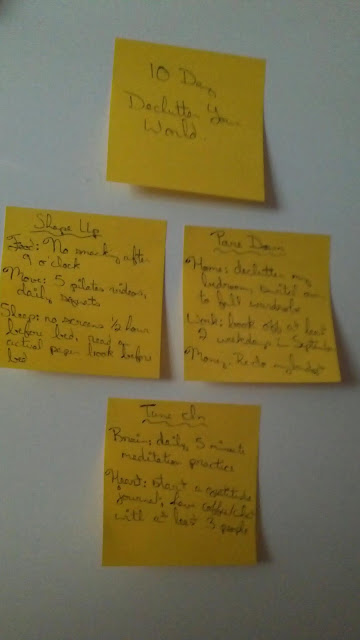 10 Day
Declutter Your
World.
Shape Up
Food: No snacking after
9 o'clock
Move: 5 pilates videos,
daily squats
Sleep: no screens 1/2 hour
before bed, read
actual paper book before
bed
Pare Down
Home: declutter my
bedroom, switch over
to fall wardrobe
Work: book off at least
2 weekdays in September
Money: Re do my budget
Tune In
Brain: daily, 5 minute
meditation practice
Heart: start a gratitude
journal, have coffee/
with at least 3 people